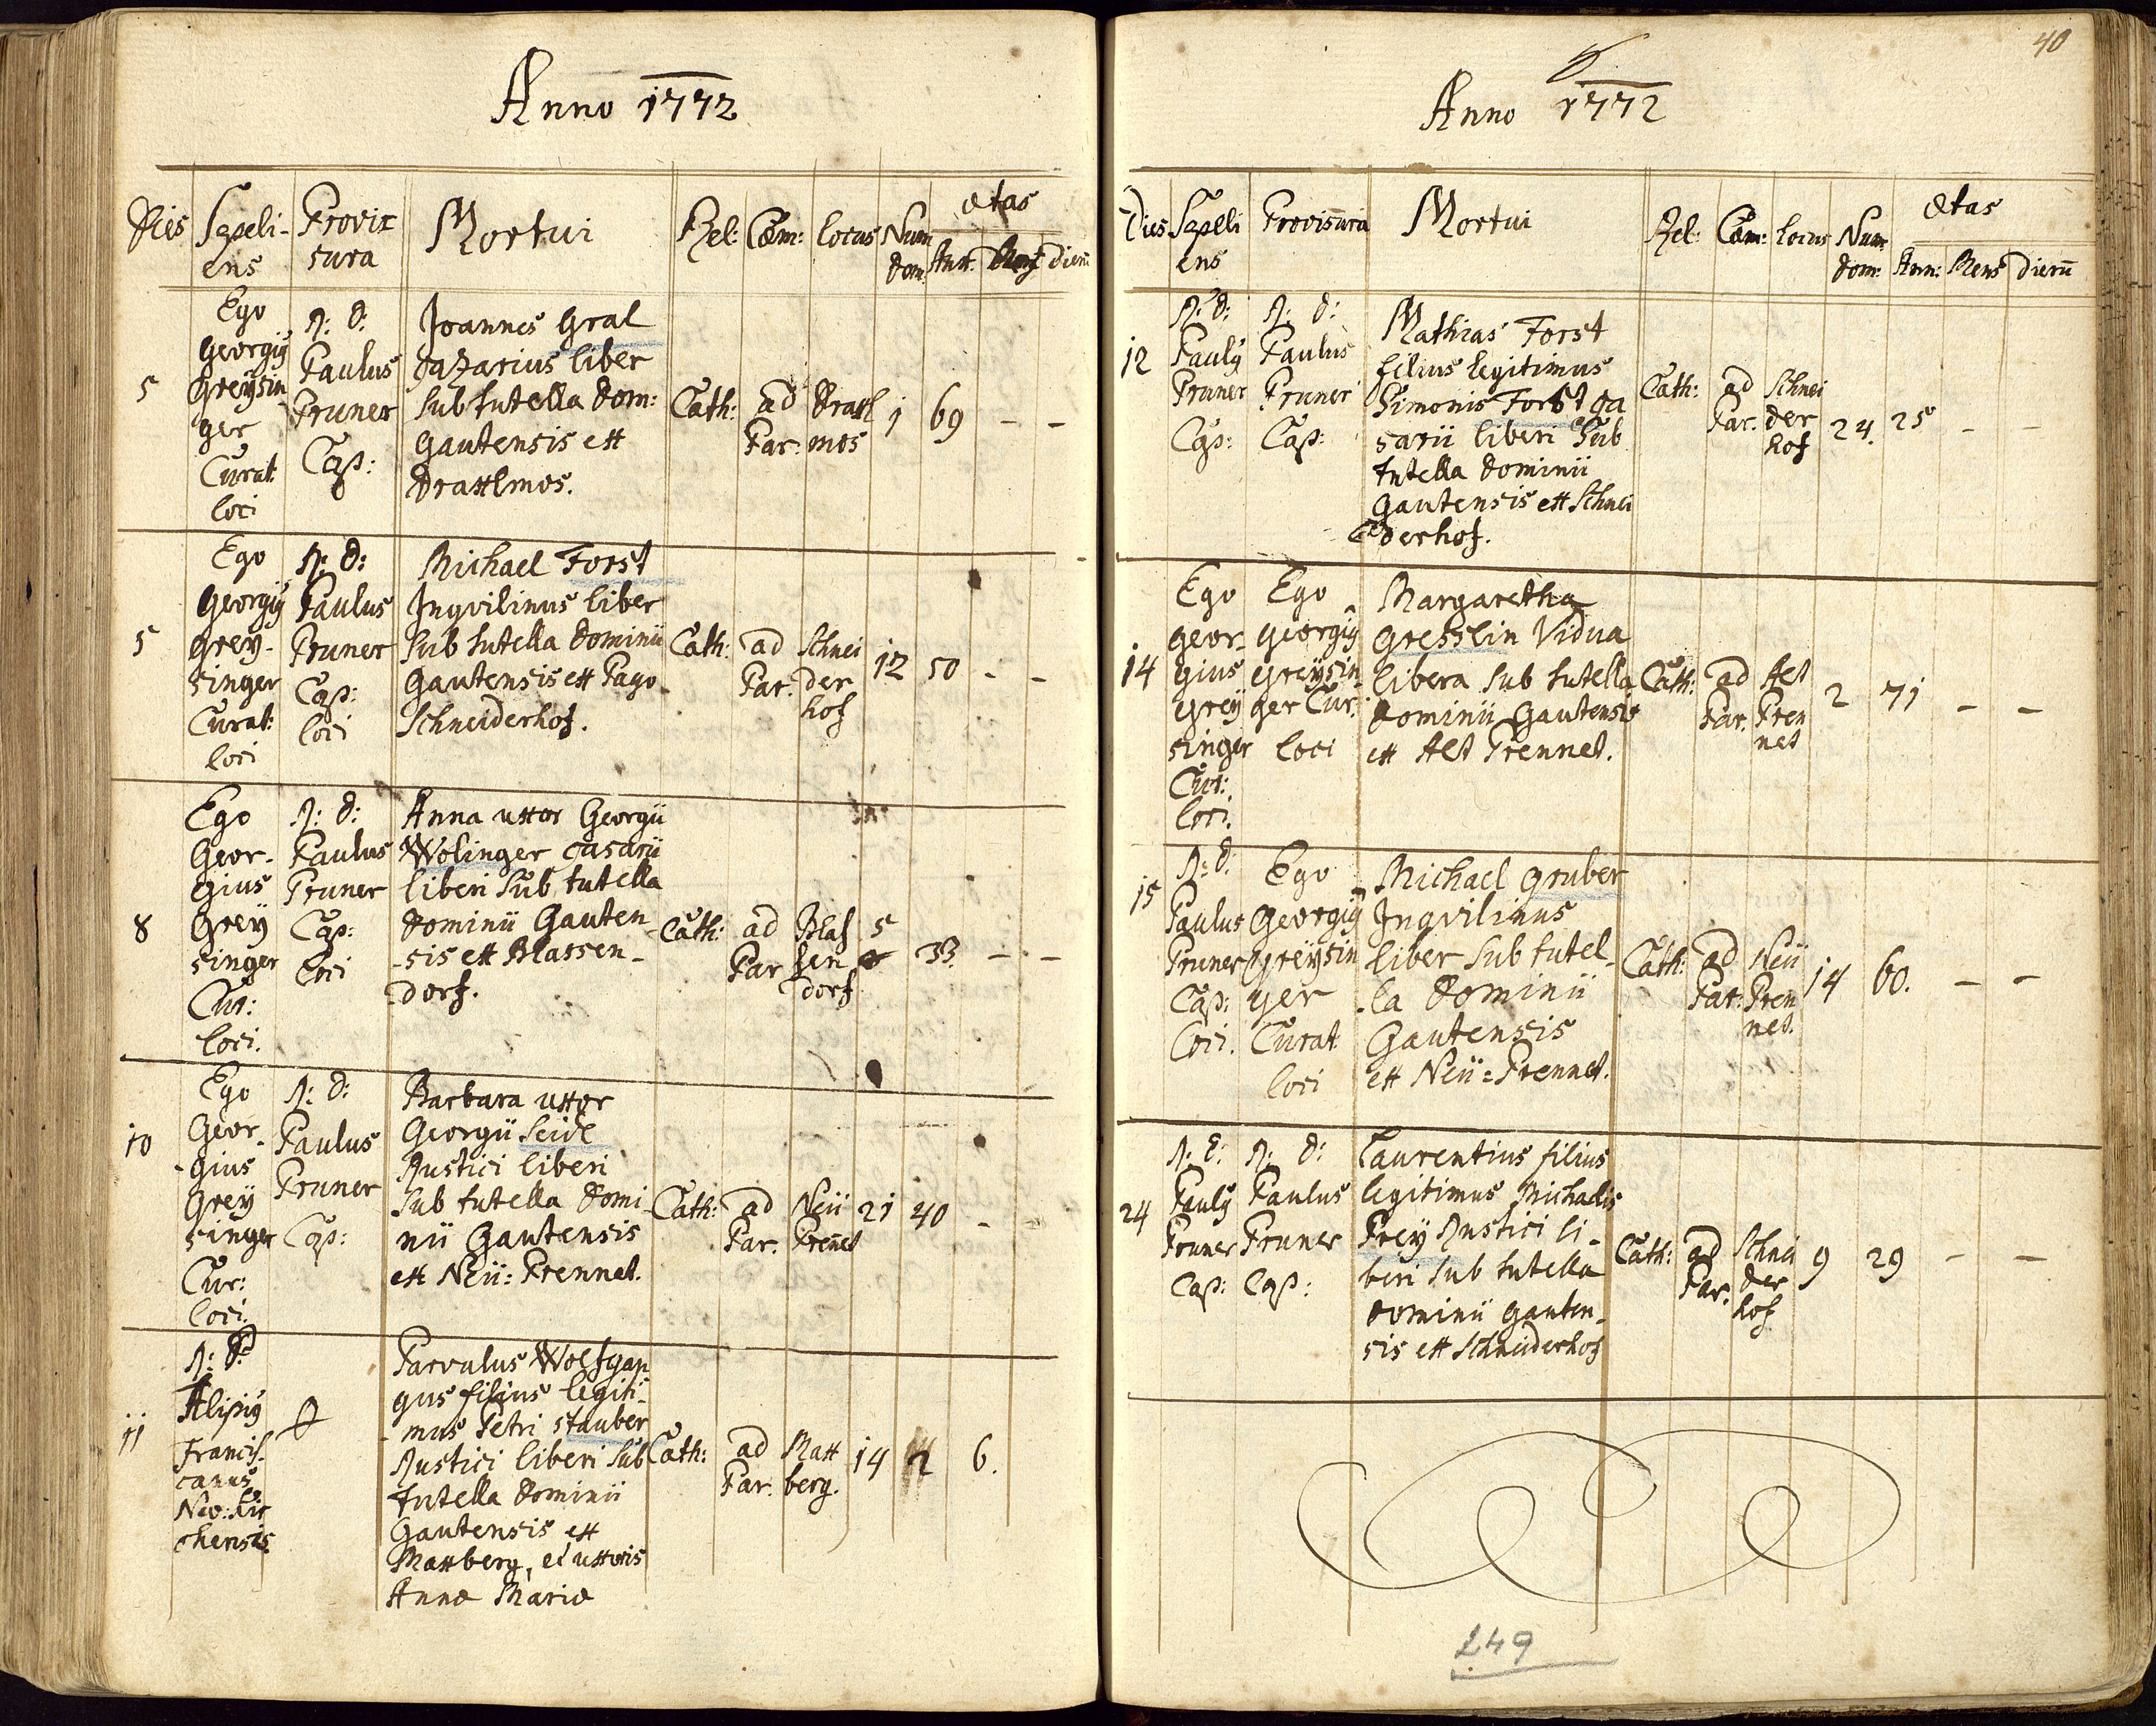 Anno 1772
Dies Sepeli- Provix Mortui Rel: Cæm: locus Num ætas
ens sura dom: Ann: Mens: dierū
5
Ego
Georgiɏ
Greÿsin
ger
Curat:
loci
R: d:
Paulus
Pruner
Cap:
Joannes Gral
Casarius liber
sub tutella dom:
Gautensis ex
Draxlmos.
Cath:
ad
Par:
Draxl
mos
1
69
- -
5
Ego
Georgiɏ
Greÿ-
singer
Curat:
loci
R: d:
Paulus
Pruner
Cap:
loci
Michael Forst
Inqvilinus liber
sub tutella Dominii
Gautensis ex Pago
Schneiderhof.
Cath:
ad
Par.
Schnei
der
hof
12
50
- -
8
Ego
Geor-
gius
Greÿ
singer
Cur:
loci.
R: d:
Paulus
Pruner
Cap:
loci
Anna uxor Georgii
Wolinger casarii
liberi sub tutella
Dominii Gauten-
-sis ex Blassen-
dorf.
Cath:
ad
Par
Blas
sen
dorf
5
33.
- -
10
Ego
Geor-
gius
Greÿ
singer
Cur:
loci.
R: d:
Paulus
Pruner
Cap:
Barbara uxor
Georgii Seidl
Rustici liberi
sub tutella Domi-
nii Gautensis
ex Neü: Prennet.
Cath:
ad
Par.
Neü
Prenet
21
40
- -
11
R: P:
Alipiɏ
Francis-
canus
Neo: Kir
chensis.
Parvulus Wolfgan
gus filius legiti-
mus Petri Stauber
Rustici liberi sub
tutella Dominii
Gautensis ex
Maxberg, et uxoris
Annæ Mariæ
Cath:
ad
Par.
Max
berg.
14
2
6.
40
Anno 1772
Dies Sepeli Provisura Mortui Rel: Cæm: locus Num ætas
ens dom: Ann: Mens dierū
12
R: d:
Pauly
Pruner
Cap:
R: d:
Paulus
Pruner
Cap:
Mathias Forst
filius legitimus
Simonis Forst Ca
sarii liberi sub
tutella Dominii
Gautensis ex Schnei
derhof.
Cath:
ad
Par.
Schnei
der
hof
24.
25
- -
14
Ego
Geor-
gius
Greÿ
singer
Cur:
loci.
Ego
Georgiɏ
Greÿsin-
ger Cur:
loci
Margaretha
Gresslin Vidua
libera sub tutella
Dominii Gautensis
ex Alt Prennet.
Cath:
ad
Par.
Alt
Pren
net
2
71
- -
15
R: d:
Paulus
Pruner
Cap:
loci.
Ego
Georgiɏ
Greÿsin
ger
Curat
loci
Michael Gruber
Inqvilinus
liber sub tutel-
la Dominii
Gautensis
ex Neü: Prennet.
Cath:
ad
Par:
Neü
Pren
net.
14
60.
- -
24
R: d:
Pauly
Pruner
Cap:
R: d:
Paulus
Pruner
Cap:
Laurentius filius
legitimus Michaelis
Preÿ Rustici li-
beri sub tutella
Dominii Gauten-
sis ex Schneiderhof
Cath:
ad
Par.
Schnei
der
hof
9
29
- -
249